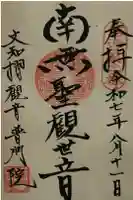 奉拝
令和七年八月十一日
南無聖観世音
文知摺観音普門院